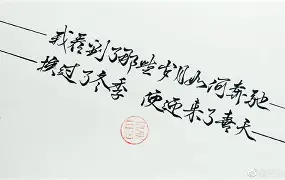 我看到了那些岁月如何奔驰
挨过了冬季 便迎来了春天